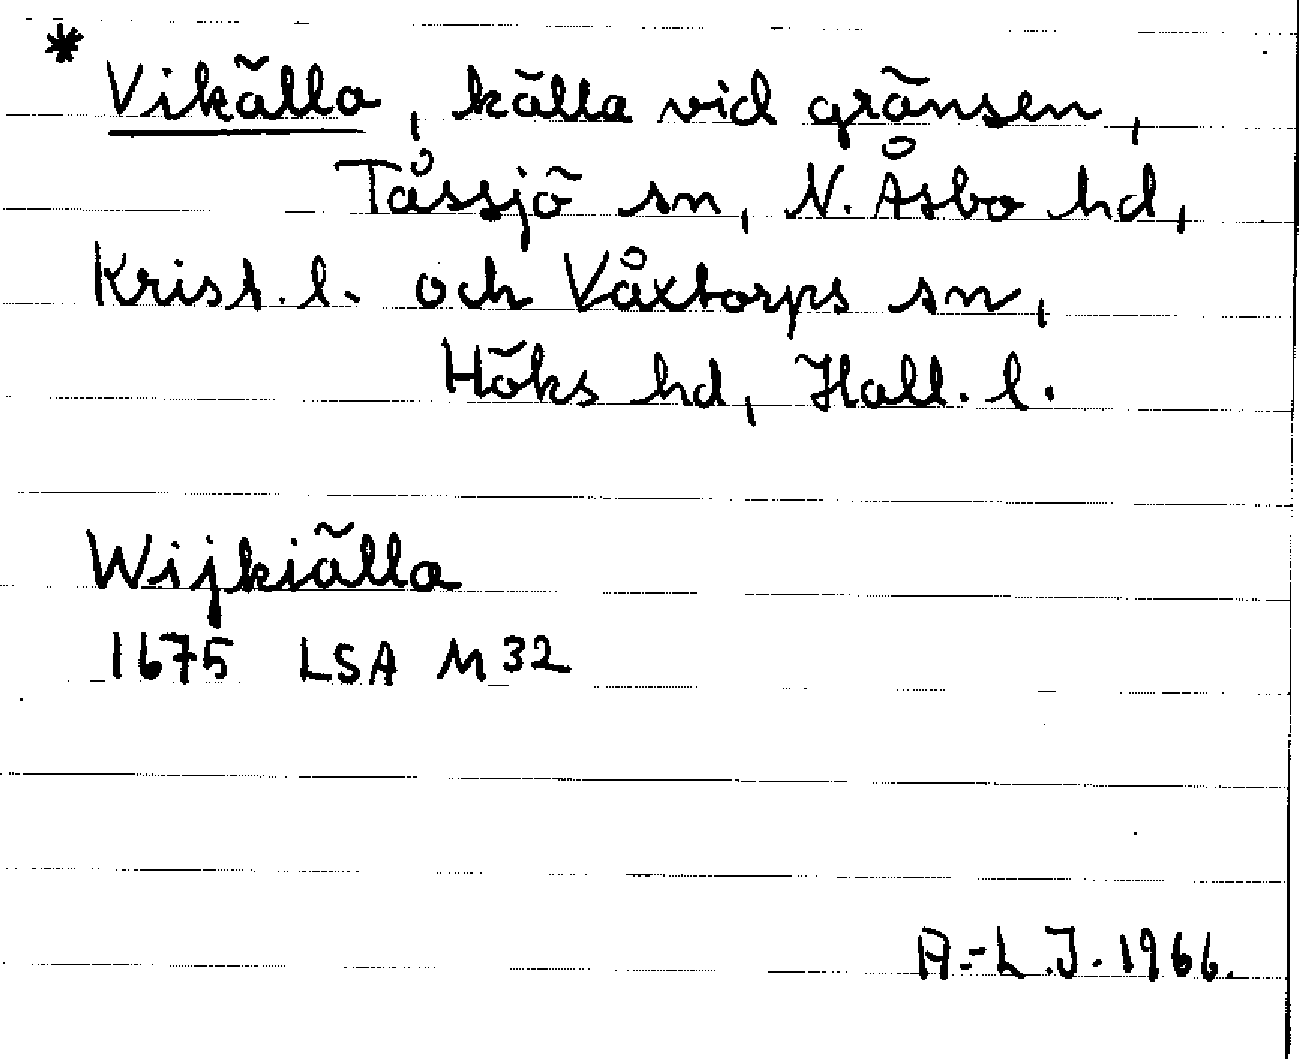 * Vikälla, källa vid gränsen,
Tåssjö sn, N. Åsbo hd,
Krist. l. och Våxtorps sn,
Höks hd, Hall. l.
Wijkiälla
1675 LSA M 32
A.-L.J. 1966.